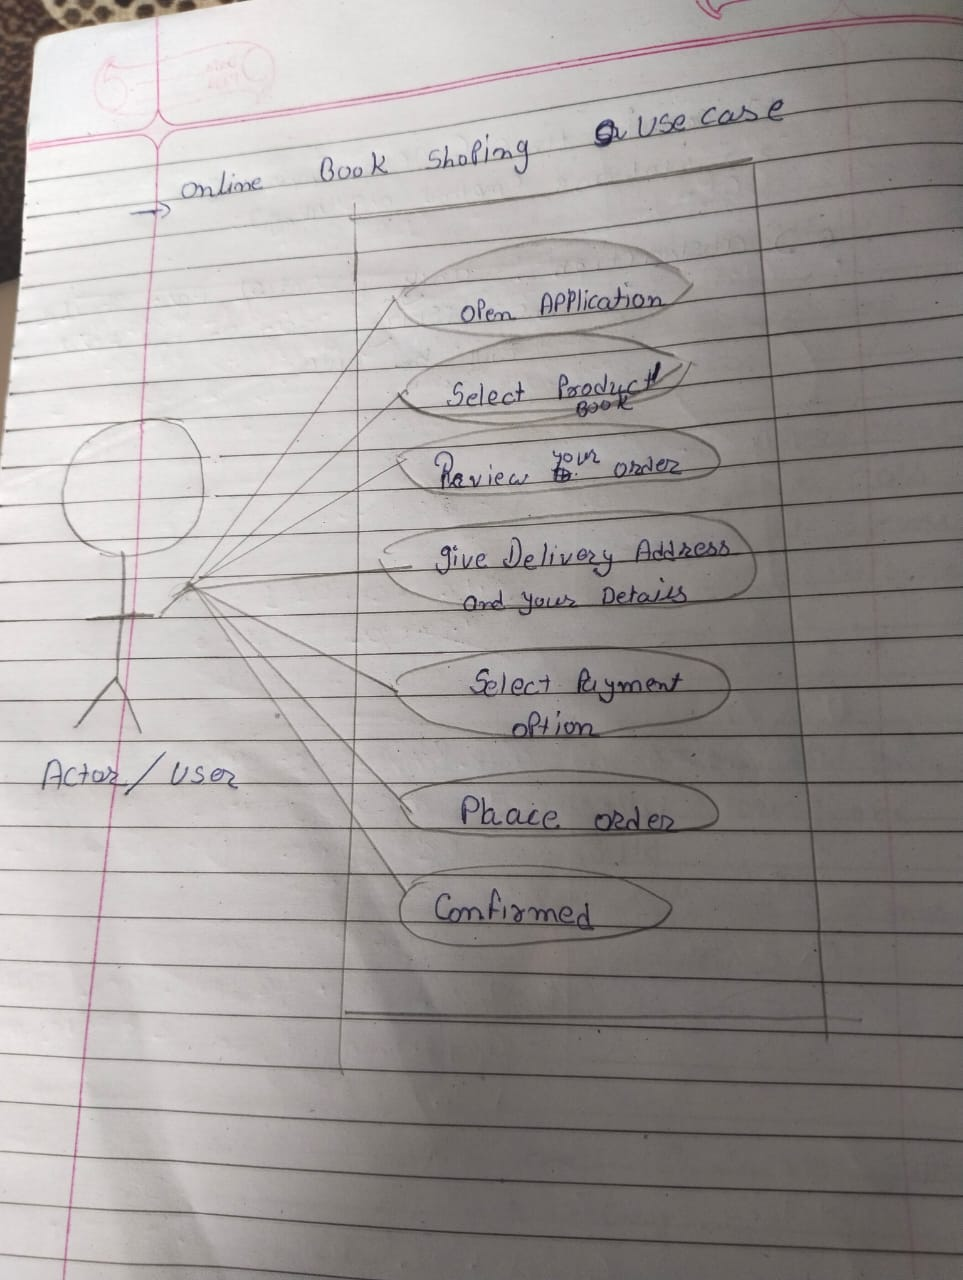 → Online Book Shoping Use case
Open Application
Select Product
Book
Review your order
give Delivery Address
and your Details
Select Payment
option
Actor / User
Plaace order
Confirmed